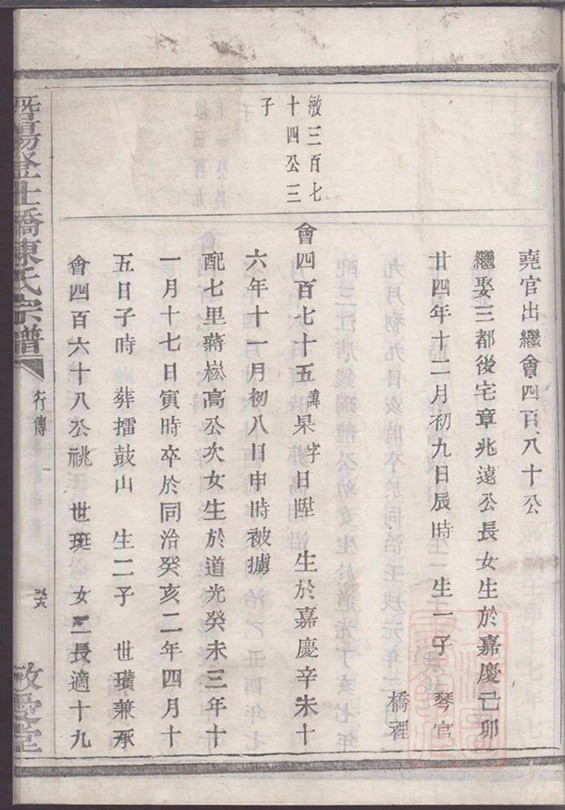 堯官出繼會四百八十公
繼娶三都後宅章兆遠公長女生於嘉慶己卯
廿四年十二月初九日辰時 生一子 琴官
橋裡
敏三百七
十四公三
子
會四百七十五諱杲字日陞 生於嘉慶辛未十
六年十一月初八日申時被擄
配七里蔣崧高公次女生於道光癸未三年十
一月十七日寅時卒於同治癸亥二年四月十
五日子時 葬擂鼓山 生二子 世璜兼承
會四百六十八公祧 世斑 女二長適十九
暨陽登仕橋陳氏宗譜
行傳
敏愛堂